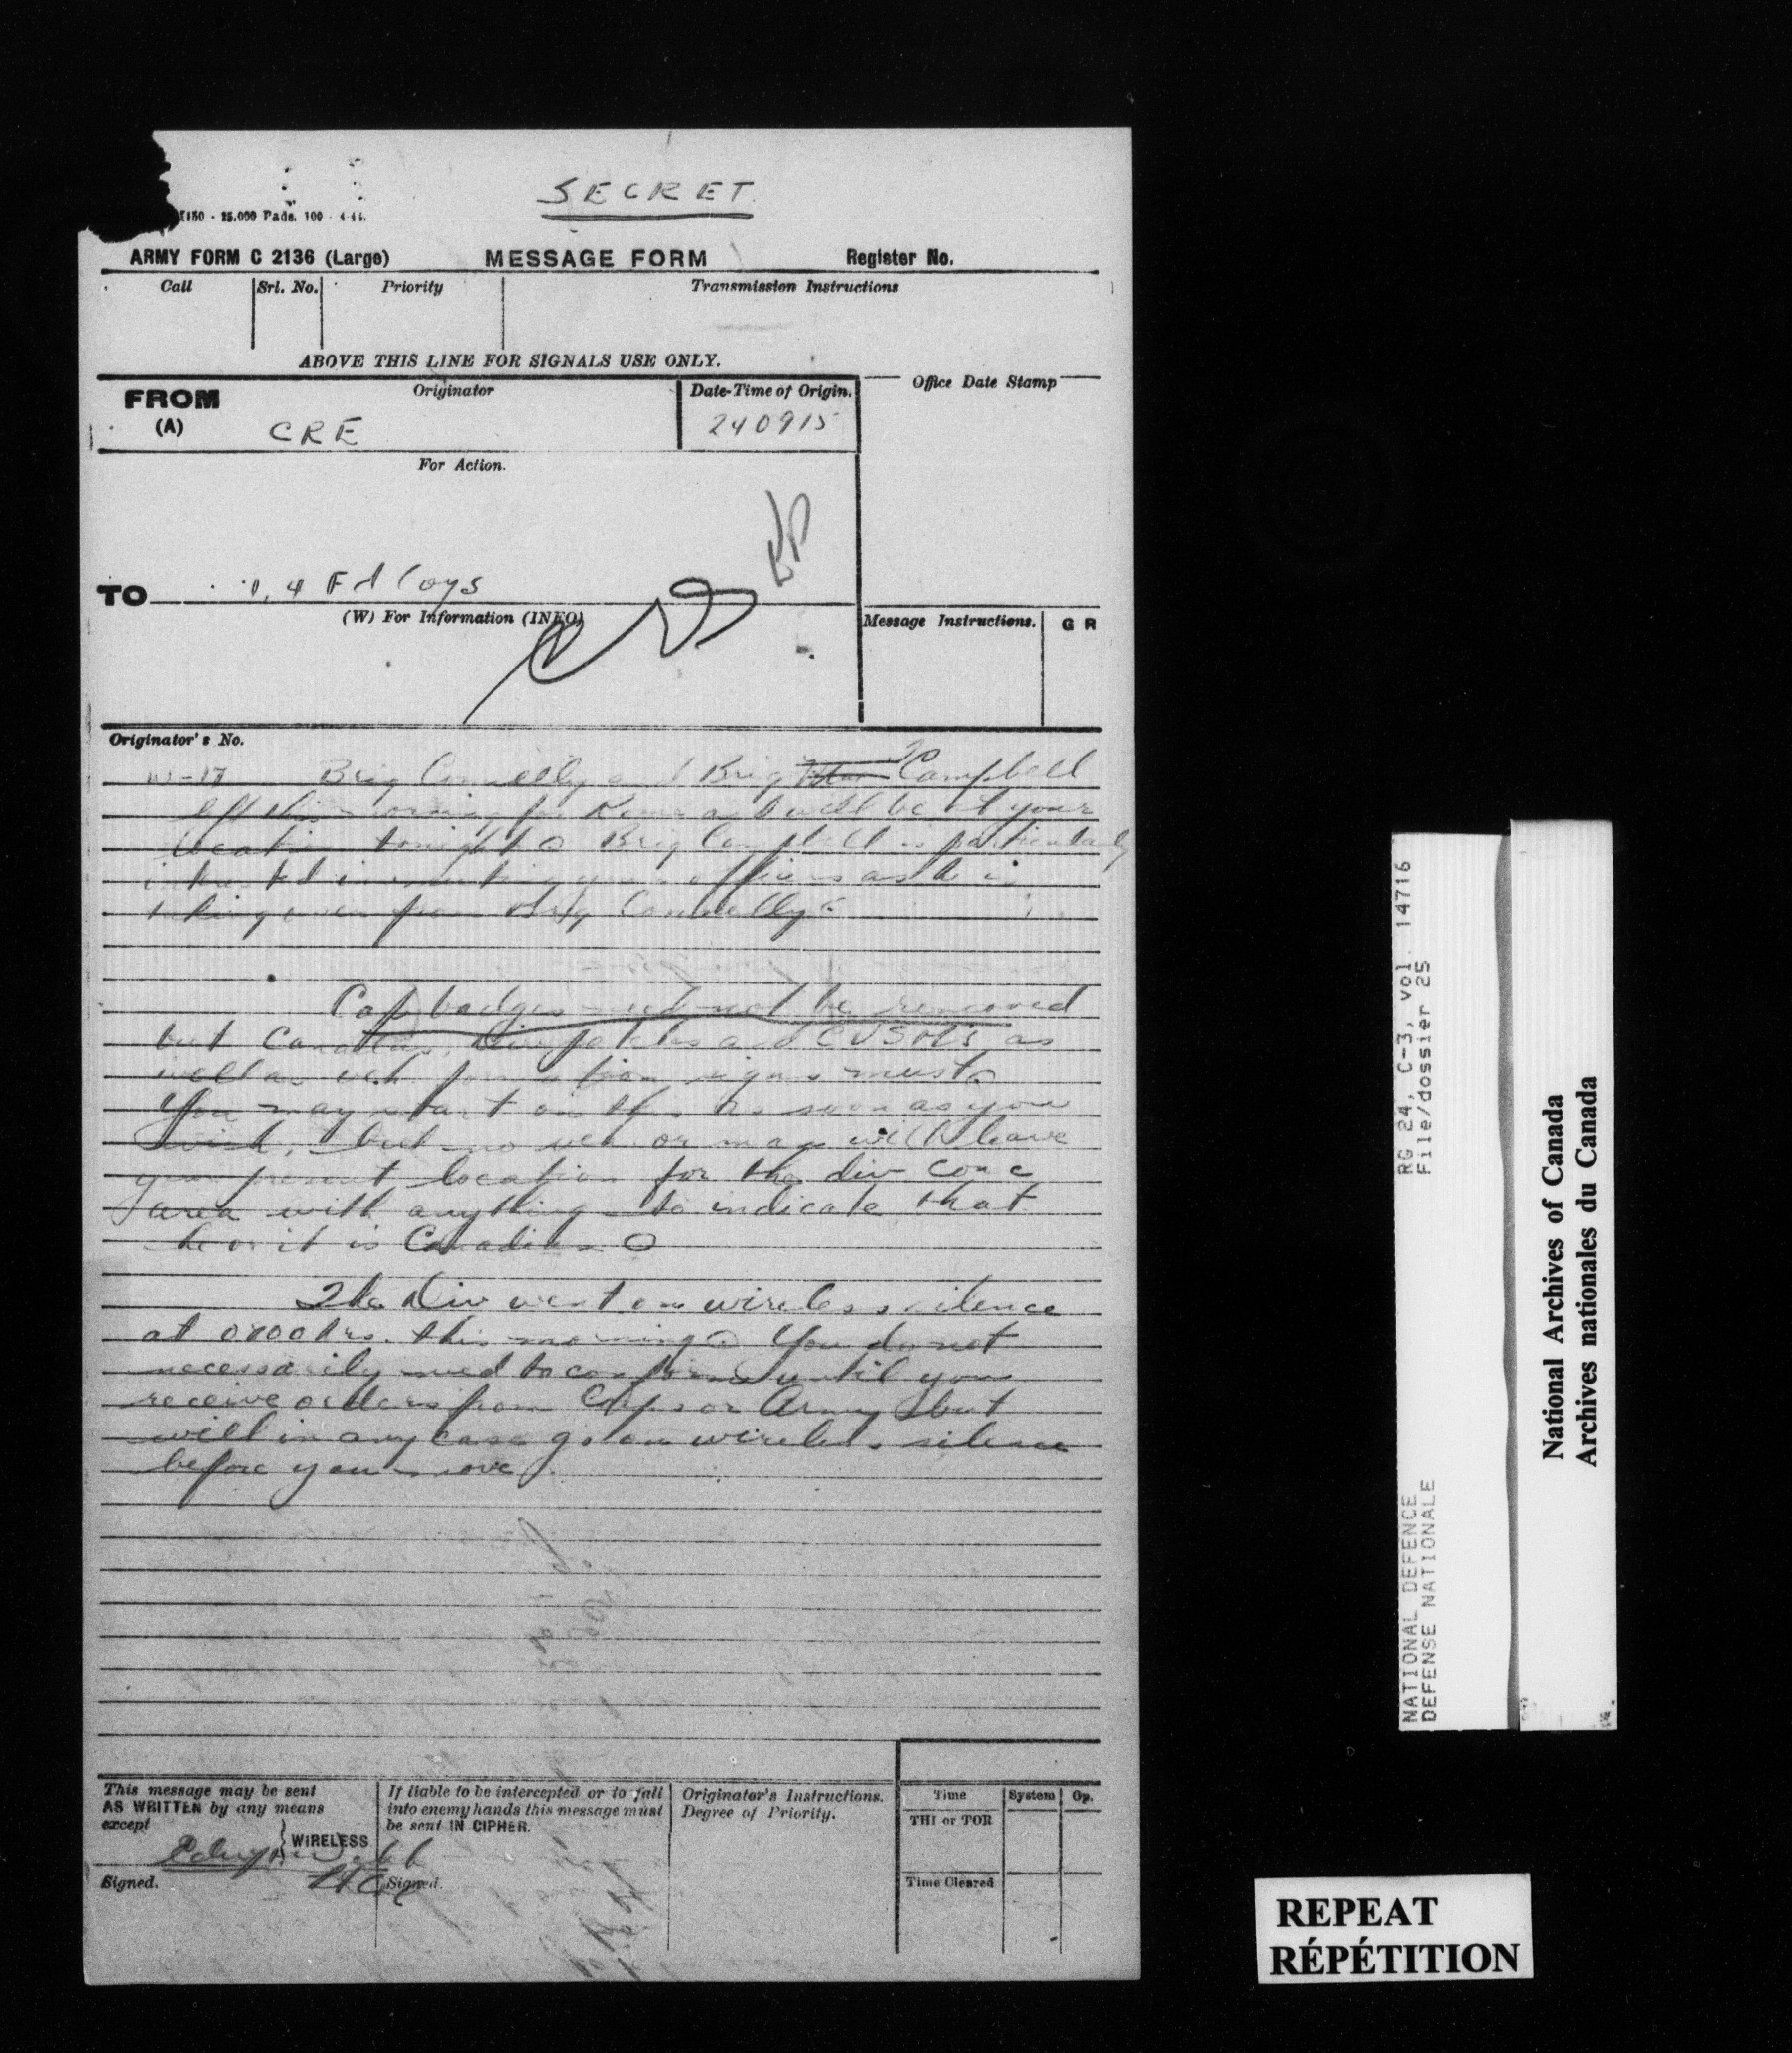 SECRET
150 - 25.000 Pads. 100 - 4-44.
ARMY FORM C 2136 (Large) MESSAGE FORM Register No.
Call Srl. No. Priority Transmission Instructions
ABOVE THIS LINE FOR SIGNALS USE ONLY.
FROM (A) Originator Date-Time of Origin. Office Date Stamp
CRE 240915
For Action.
TO 1, 4 Fd Coys
(W) For Information (INFO) Message Instructions. G R
Originator's No.
Brig Connelly and Brig Campbell
left this morning for Rome and will be at your
location tonight O Brig Campbell is particularly
interested in meeting your officers as he is
taking over from Brig Connelly O
Cap badges need not be removed
but Canadas, div patches and CVSMs as
well as veh formation signs must O
You may start on this as soon as you
wish, but no veh or man will leave
your present location for the div conc
area with anything to indicate that
he or it is Canadian O
The Div went on wireless silence
at 0800 hrs. this morning O You do not
necessarily need to conform until you
receive orders from Corps or Army but
will in any case go on wireless silence
before you move.
This message may be sent AS WRITTEN by any means except WIRELESS
If liable to be intercepted or to fall into enemy hands this message must be sent IN CIPHER.
Originator's Instructions. Degree of Priority.
Time System Op.
THI or TOR
Time Cleared
Webb
Signed. Signed.
NATIONAL DEFENCE RG 24, C-3, vol. 14716
DEFENSE NATIONALE File/dossier 25
National Archives of Canada
Archives nationales du Canada
REPEAT
RÉPÉTITION